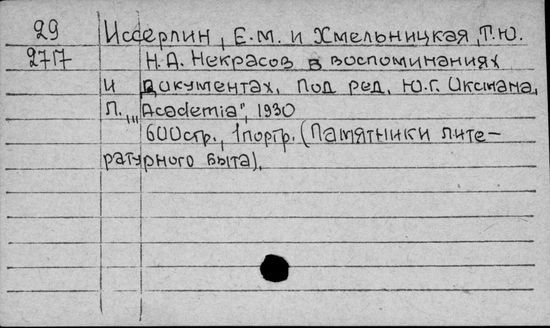 29 Иссерлин, Е.М. и Хмельницкая, Т.Ю.
2717 Н.А. Некрасов в воспоминаниях
и документах. Под ред. Ю.Г. Оксмана,
Л., „Academia", 1930
600стр., 1портр. (Памятники лите-
ратурного быта).